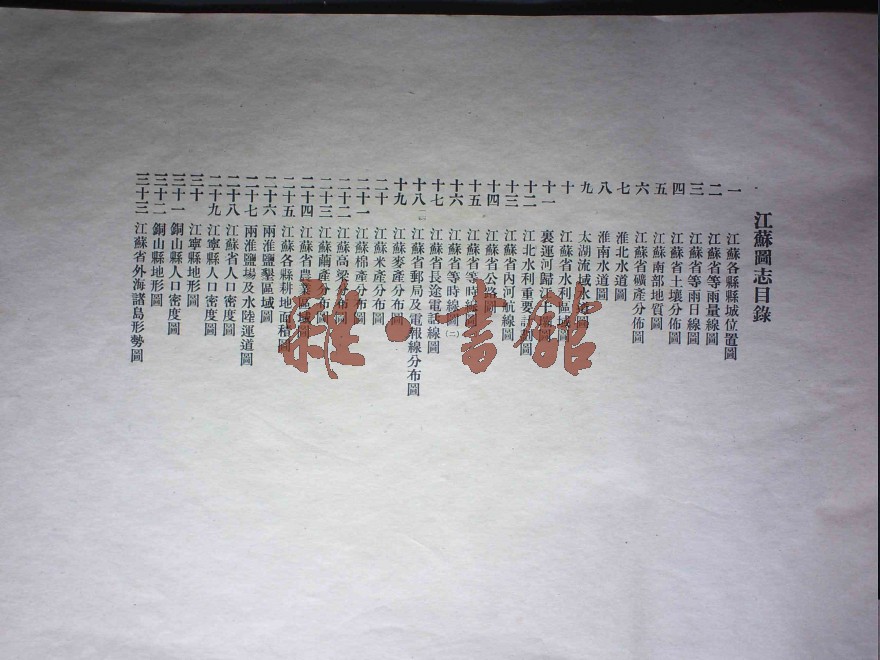 江蘇圖志目錄
一 江蘇各縣縣城位置圖
二 江蘇省等雨量線圖
三 江蘇省等雨日線圖
四 江蘇省土壤分佈圖
五 江蘇南部地質圖
六 江蘇省礦產分佈圖
七 淮北水道圖
八 淮南水道圖
九 太湖流域水道圖
十 江蘇省水利區域圖
十一 裏運河歸江圖
十二 江北水利重要計劃圖
十三 江蘇省內河航線圖
十四 江蘇省公路圖
十五 江蘇省等時線圖
十六 江蘇省等時線圖(二)
十七 江蘇省長途電話線圖
十八 江蘇省郵局及電報線分布圖
十九 江蘇麥產分布圖
二十 江蘇米產分布圖
二十一 江蘇棉產分布圖
二十二 江蘇高梁分布圖
二十三 江蘇繭產分布圖
二十四 江蘇省農業區域圖
二十五 江蘇各縣耕地面積圖
二十六 兩淮鹽墾區域圖
二十七 兩淮鹽場及水陸運道圖
二十八 江蘇省人口密度圖
二十九 江寧縣人口密度圖
三十 江寧縣地形圖
三十一 銅山縣人口密度圖
三十二 銅山縣地形圖
三十三 江蘇省外海諸島形勢圖
雜·書館